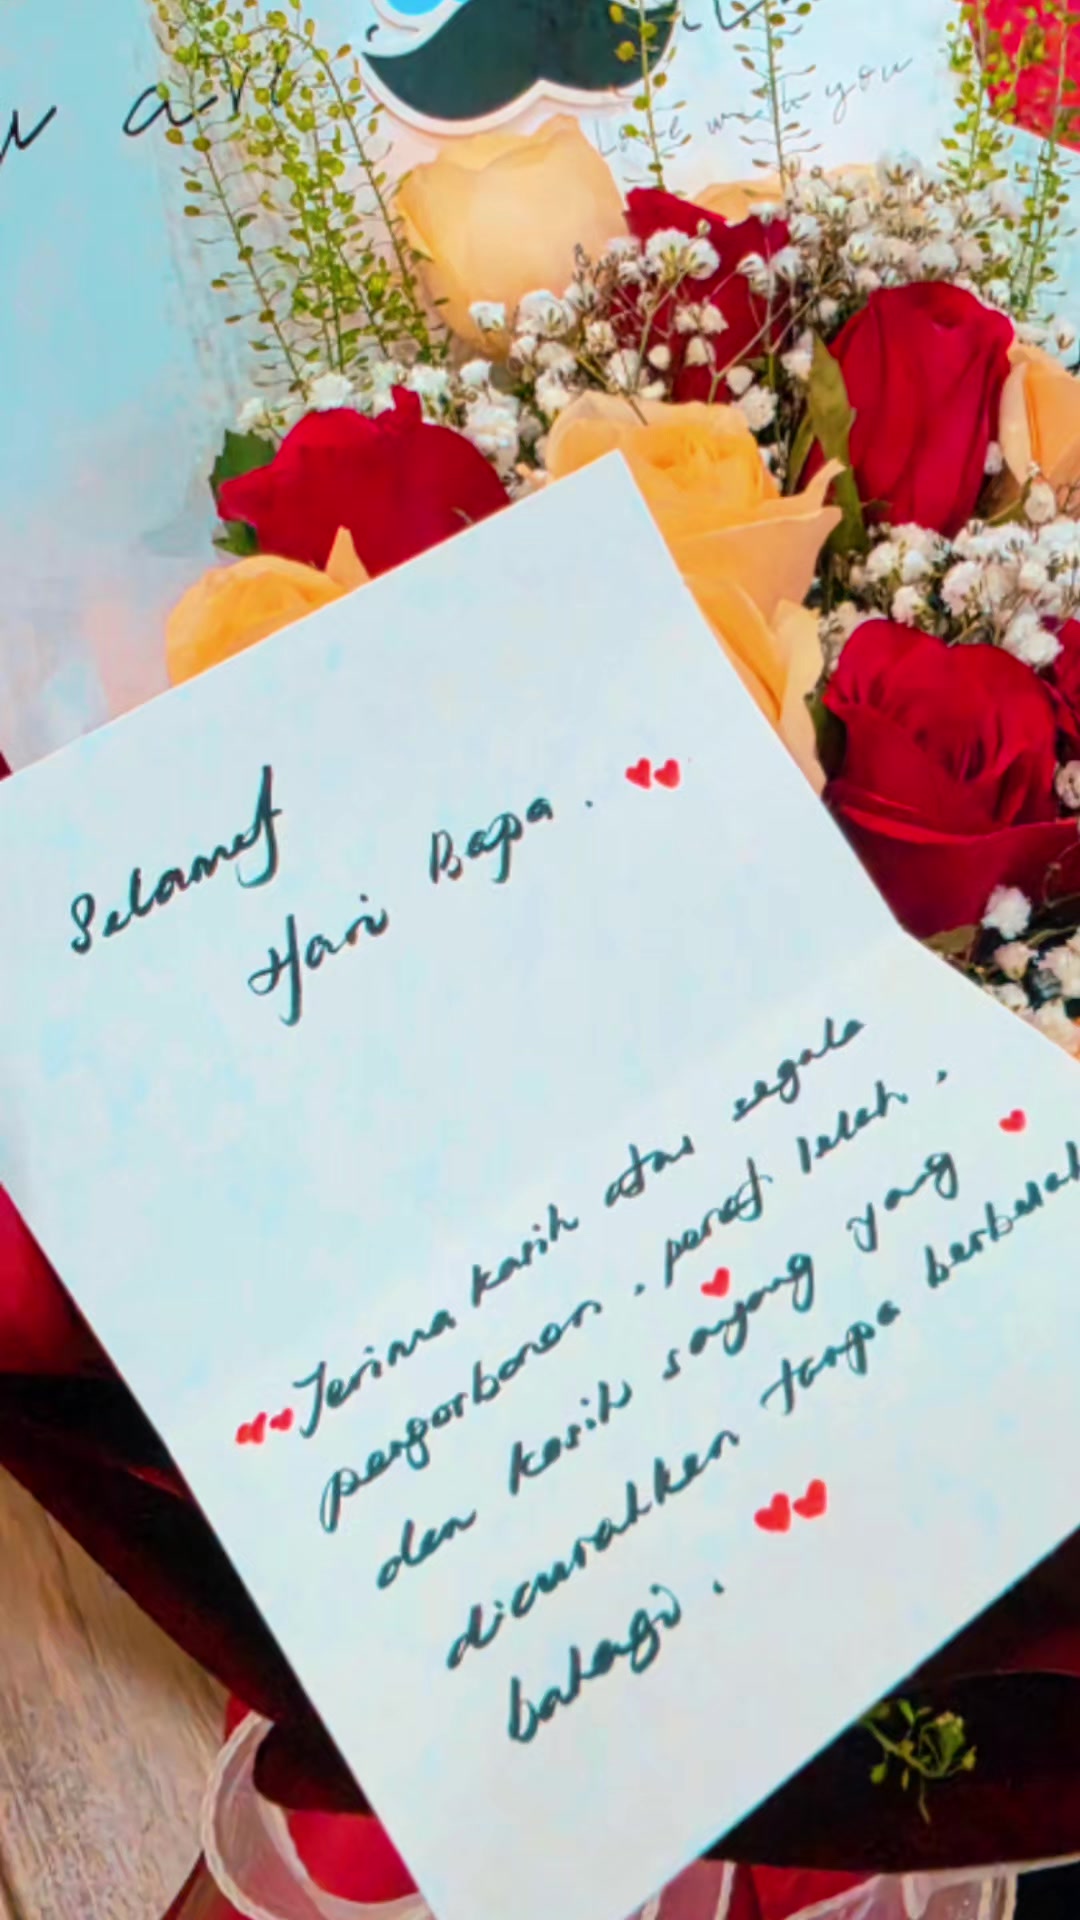 an
Love to you
Selamat
Hari Bapa.
Terima kasih atas segala
pengorbanan, penat lelah,
dan kasih sayang yang
dicurahkan tanpa berbelah
bahagi.